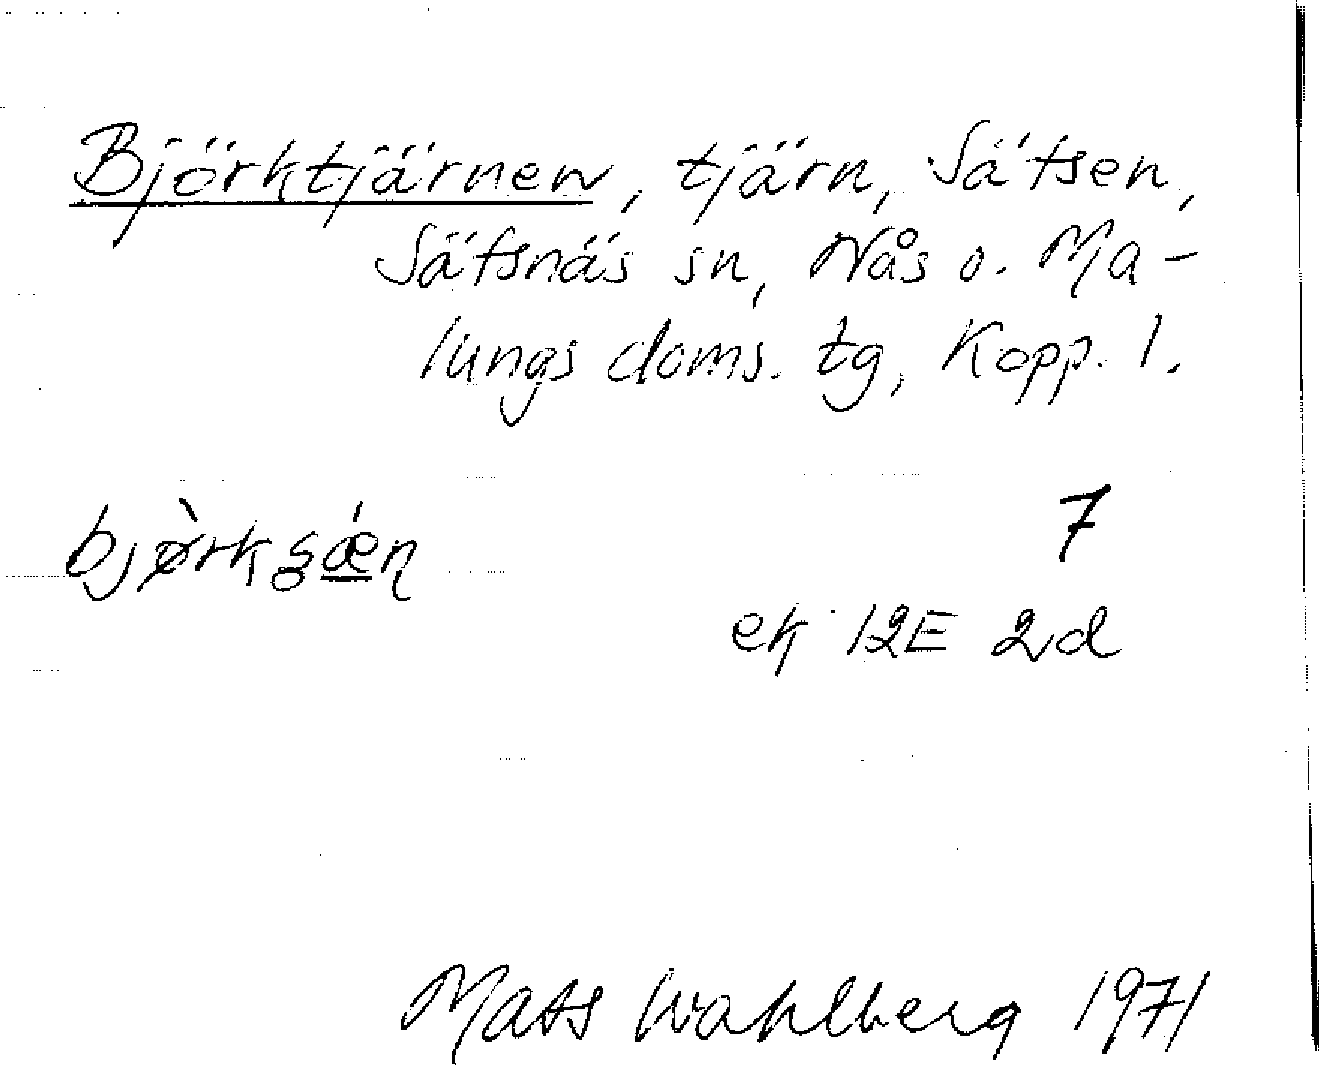 Björktjärnen, tjärn, Sätsen,
Säfsnäs sn, Nås o. Ma-
lungs doms. tg, Kopp. l.
7
ek 12E 2d
Mats Wahlberg 1971